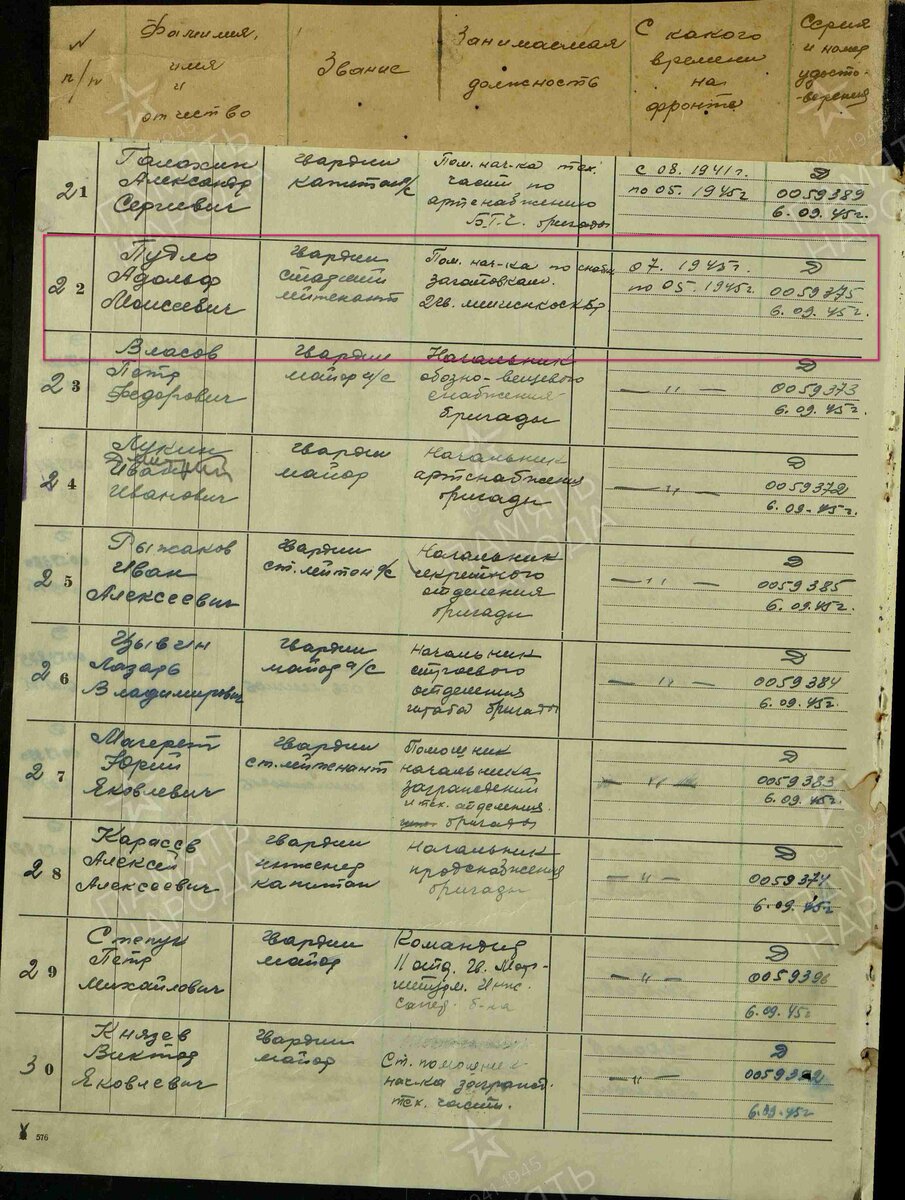 N п/п
Фамилия, имя и отчество
Звание
Занимаемая должность
С какого времени на фронте
Серия и номер удосто-верения
21
Галахин Александр Сергевич
Гвардии капитан а/с
Пом. нач-ка тех. части по артснабжению Б.Т.Ч. бригады
с 08. 1941г. по 05. 1945г.
D 0059389 6.09.45г.
22
Пудло Адольф Моисеевич
Гвардии старший лейтенант
Пом. нач-ка по снабж. заготовкам.
07. 1945г. по 05. 1945г.
D 0059375 6.09.45г.
23
Власов Петр Федорович
Гвардии майор и/с
Начальник обозно-вещевого снабжения бригады
— " —
D 0059373 6.09.45г.
24
Лукин Дмитрий Иванович
Гвардии майор
Начальник артснабжения бригады
— " —
D 0059372 6.09.45г.
25
Рыжаков Иван Алексеевич
Гвардии ст. лейтен а/с
Начальник секретного отделения бригады
— " —
D 0059385 6.09.45г.
26
Цывин Лазарь Владимирович
Гвардии майор а/с
Начальник строевого отделения штаба бригады
— " —
D 0059384 6.09.45г.
27
Юрий Яковлевич
Гвардии ст. лейтенант
Помощник начальника заграждений и тех. отделения. бригады
— " —
D 0059383 6.09.45г.
28
Карасев Алексей Алексеевич
Гвардии инженер капитан
Начальник продснабжения бригады
— " —
D 0059374 6.09.45г.
29
Степук Петр Михайлович
Гвардии майор
Командир 11 отд. Гв. Мот-штурм. Инж. сапер. б-на
— " —
D 6.09.45г
30
Князев Виктор Яковлевич
Гвардии майор
Ст. помощник нач-ка заграж. тех. части.
— " —
D 6.09.45г
576
ПАМЯТЬ НАРОДА
1941-1945